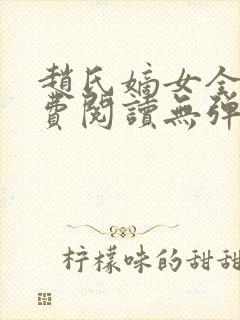 趙氏嫡女全
費閱讀無彈
柠檬味的甜甜